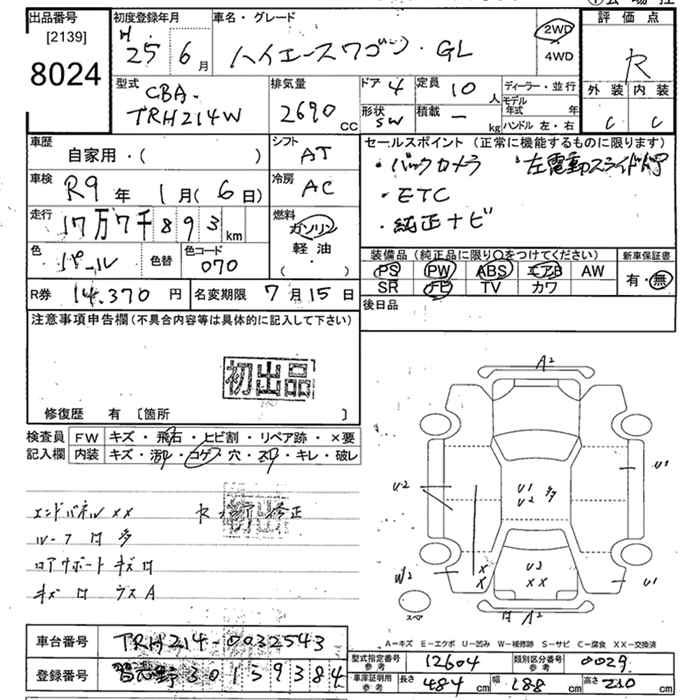 出品番号 初度登録年月 車名・グレード 評価点
[2139]
8024
H 25 6月 ハイエースワゴン・GL 2WD 4WD R
型式 排気量 ドア 4 定員 10人 ディーラー・並行 外装 内装
CBA- TRH214W 2690 CC 形状 SW 積載 ー kg モデル年式 年 ハンドル 左・右 C C
車歴 シフト セールスポイント (正常に機能するものに限ります)
自家用・( ) AT ・バックカメラ
車検 冷房 ・ETC
R9年 1月(6日) AC ・純正ナビ
走行 燃料
17万7千893km ガソリン
色 色替 色コード 軽・油
パール 070 ( )
装備品 (純正品に限り○をつけてください) 新車保証書
PS PW ABS エアB AW 有・無
SR ナビ TV カワ
R券 14,370円 名変期限 7月15日 後日品
注意事項申告欄(不具合内容等は具体的に記入して下さい)
初出品
修復歴 有 [箇所 ]
検査員 FW キズ・飛石・ヒビ割・リペア跡・×要
記入欄 内装 キズ・汚・コゲ・穴・スリ・キレ・破レ
エンドパネル XX 修正
ルーフ 多
ロアサポート キズ
キズ ウスA
A2
U2
U1
U1
U2
多
U1
W2
U3
XX
X
X
スペア
A2
A-キズ E-エクボ U-凹み W-補修跡 S-サビ C-腐食 XX-交換済
車台番号 TRH214-0032543
登録番号 習志野301 9384
型式指定番号 参考 12604 類別区分番号 参考 0029
車庫証明用 参考 長さ 484cm 幅 188cm 高さ 210cm